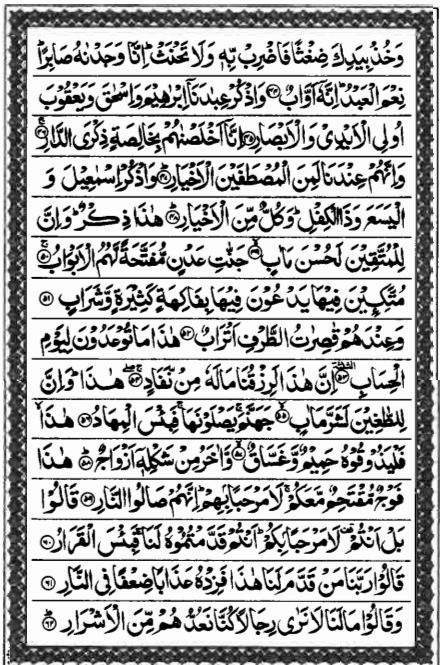 وَخُذْ بِيَدِكَ ضِغْثًا فَاضْرِبْ بِّهٖ وَلَا تَحْنَثْ ؕ اِنَّا وَجَدْنٰهُ صَابِرًا ؕ
نِعْمَ الْعَبْدُ ؕ اِنَّهٗۤ اَوَّابٌ ﴿۴۴﴾ وَاذْكُرْ عِبٰدَنَاۤ اِبْرٰهِيْمَ وَاِسْحٰقَ وَيَعْقُوْبَ
اُولِى الْاَيْدِىْ وَالْاَبْصَارِ ﴿۴۵﴾ اِنَّاۤ اَخْلَصْنٰهُمْ بِخَالِصَةٍ ذِكْرَى الدَّارِ ﴿۴۶﴾
وَاِنَّهُمْ عِنْدَنَا لَمِنَ الْمُصْطَفَيْنَ الْاَخْيَارِ ﴿۴۷﴾ وَاذْكُرْ اِسْمٰعِيْلَ وَ
الْيَسَعَ وَذَا الْكِفْلِ ؕ وَكُلٌّ مِّنَ الْاَخْيَارِ ﴿۴۸﴾ هٰذَا ذِكْرٌ ؕ وَاِنَّ
لِلْمُتَّقِيْنَ لَحُسْنَ مَاٰبٍ ﴿۴۹﴾ جَنّٰتِ عَدْنٍ مُّفَتَّحَةً لَّهُمُ الْاَبْوَابُ ﴿۵۰﴾
مُتَّكِـِٕيْنَ فِيْهَا يَدْعُوْنَ فِيْهَا بِفَاكِهَةٍ كَثِيْرَةٍ وَّشَرَابٍ ﴿۵۱﴾
وَعِنْدَهُمْ قٰصِرٰتُ الطَّرْفِ اَتْرَابٌ ﴿۵۲﴾ هٰذَا مَا تُوْعَدُوْنَ لِيَوْمِ
الْحِسَابِ ﴿۵۳﴾ اِنَّ هٰذَا لَرِزْقُنَا مَا لَهٗ مِنْ نَّفَادٍ ﴿۵۴﴾ هٰذَا ؕ وَاِنَّ
لِلطّٰغِيْنَ لَشَرَّ مَاٰبٍ ﴿۵۵﴾ جَهَنَّمَ ۚ يَصْلَوْنَهَا ۚ فَبِئْسَ الْمِهَادُ ﴿۵۶﴾ هٰذَا ۙ
فَلْيَذُوْقُوْهُ حَمِيْمٌ وَّغَسَّاقٌ ﴿۵۷﴾ وَّاٰخَرُ مِنْ شَكْلِهٖۤ اَزْوَاجٌ ﴿۵۸﴾ هٰذَا
فَوْجٌ مُّقْتَحِمٌ مَّعَكُمْ ۚ لَا مَرْحَبًۢا بِهِمْ ؕ اِنَّهُمْ صَالُوا النَّارِ ﴿۵۹﴾ قَالُوْا
بَلْ اَنْتُمْ ۫ لَا مَرْحَبًۢا بِكُمْ ؕ اَنْتُمْ قَدَّمْتُمُوْهُ لَنَا ۚ فَبِئْسَ الْقَرَارُ ﴿۶۰﴾
قَالُوْا رَبَّنَا مَنْ قَدَّمَ لَنَا هٰذَا فَزِدْهُ عَذَابًا ضِعْفًا فِى النَّارِ ﴿۶۱﴾
وَقَالُوْا مَا لَنَا لَا نَرٰى رِجَالًا كُنَّا نَعُدُّهُمْ مِّنَ الْاَشْرَارِ ﴿۶۲﴾